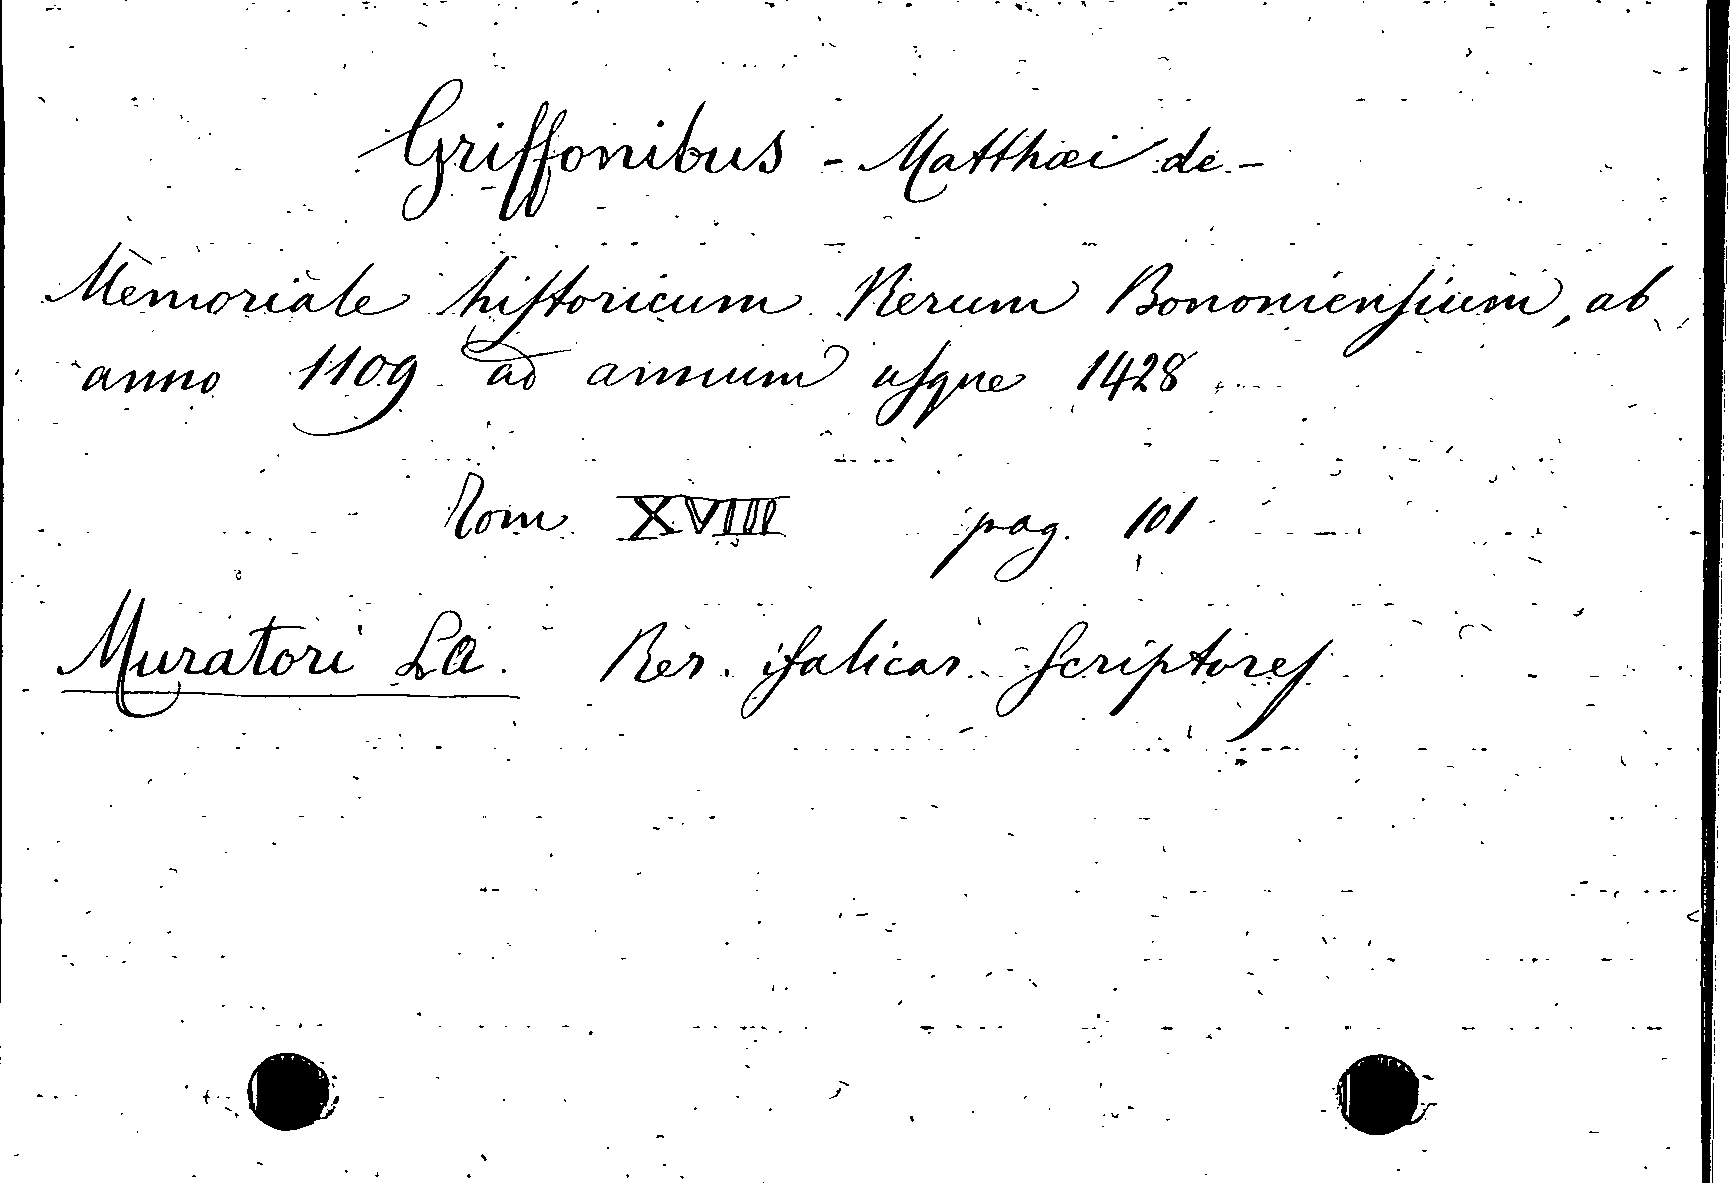 Griffonibus - Matthæi de -
Memoriale hiſtoricum Rerum Bononienſium, ab
anno 1109 ad annum uſque 1428
Tom XVIII pag. 101
Muratori LA. Rer. italicar. Scriptores